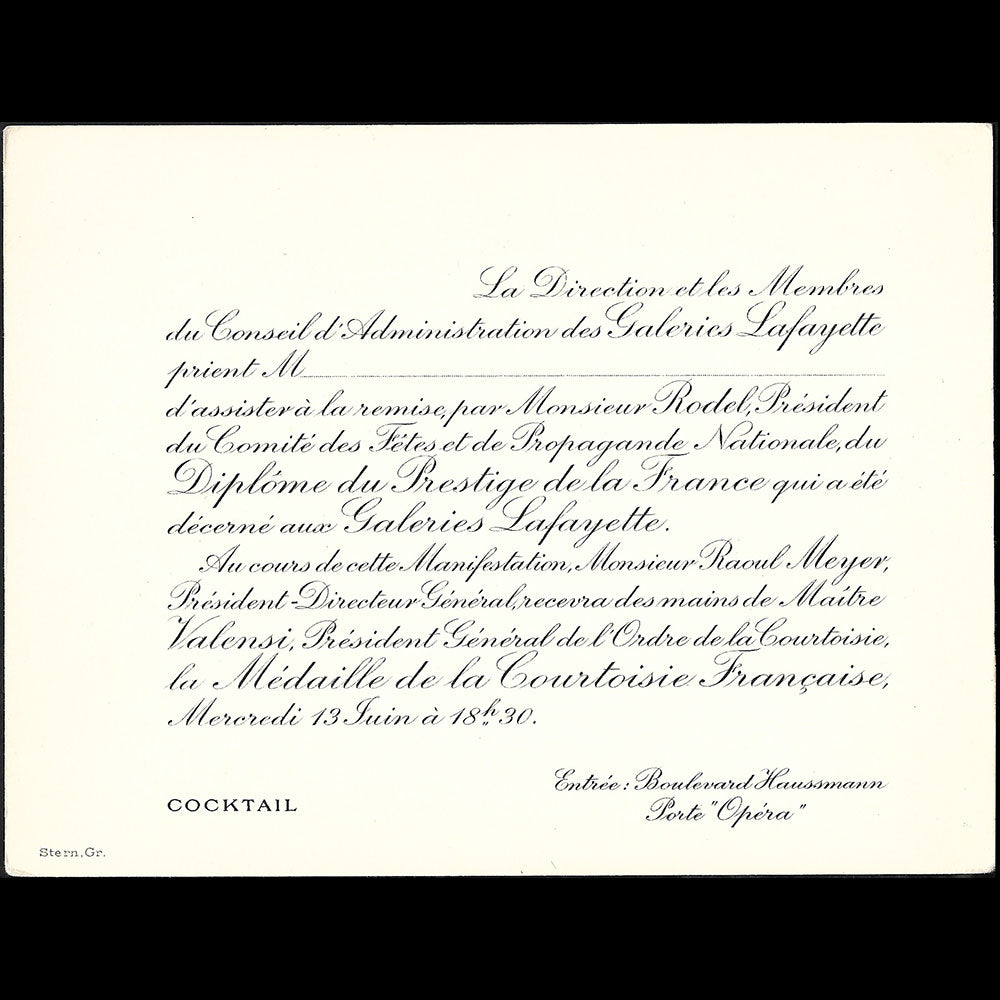 La Direction et les Membres
du Conseil d'Administration des Galeries Lafayette
prient M
d'assister à la remise, par Monsieur Rodel, Président
du Comité des Fêtes et de Propagande Nationale, du
Diplôme du Prestige de la France qui a été
décerné aux Galeries Lafayette.
Au cours de cette Manifestation, Monsieur Raoul Meyer,
Président-Directeur Général, recevra des mains de Maître
Valensi, Président Général de l'Ordre de la Courtoisie,
la Médaille de la Courtoisie Française,
Mercredi 13 Juin à 18h30.
Entrée : Boulevard Haussmann
Porte "Opéra"
COCKTAIL
Stern, Gr.